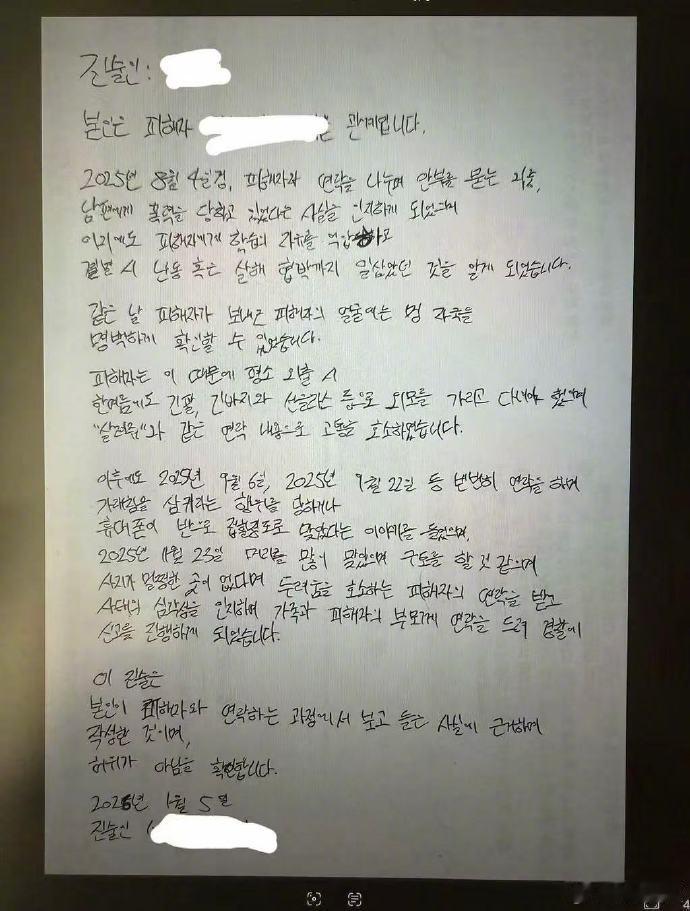 진술인:
본인은 피해자 관계입니다.
2025년 8월 4일경, 피해자와 연락을 나누며 안부를 묻던 와중,
남편에게 폭력을 당하고 있었다는 사실을 인지하게 되었으며
이외에도 피해자에게 학습의 자유를 억압하고
결별 시 난동 혹은 살해 협박까지 일삼았던 것을 알게 되었습니다.
같은 날 피해자가 보내준 피해자의 얼굴에는 멍 자국을
명백하게 확인할 수 있었습니다.
피해자는 이 때문에 평소 외출 시
한여름에도 긴팔, 긴바지와 선글라스 등으로 외모를 가리고 다녀야 했으며
"살려줘"와 같은 연락 내용으로 고통을 호소하였습니다.
이후에도 2025년 9월 6일, 2025년 9월 22일 등 빈번히 연락을 하며
가래침을 삼키라는 행위를 당하거나
휴대폰이 반으로 접힐정도로 맞았다는 이야기를 들었으며,
2025년 11월 23일 머리를 많이 맞았으며 구토를 할 것 같으며
사지가 멀쩡한 곳이 없다며 두려움을 호소하는 피해자의 연락을 받고
사태의 심각성을 인지하여 가족과 피해자의 부모께 연락을 드려 경찰에
신고를 진행하게 되었습니다.
이 진술은
본인이 피해자와 연락하는 과정에서 보고 들은 사실에 근거하여
작성한 것이며,
허위가 아님을 확인합니다.
2026년 1월 5일
진술인